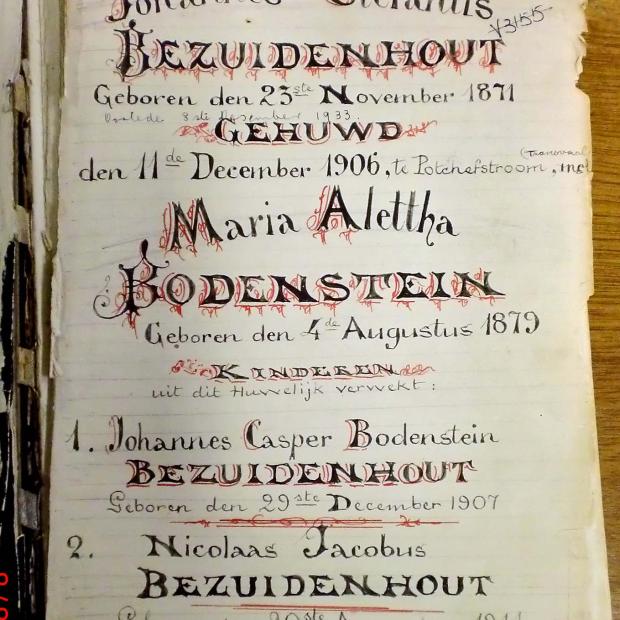 Johannes Stefanus
V3155
BEZUIDENHOUT
Geboren den 23ste November 1871
Oorlede 8ste Desember 1933.
GEHUWD
den 11de December 1906, te Potchefstroom, (Transvaal) met
Maria Alettha
BODENSTEIN
Geboren den 4de Augustus 1879
KINDEREN
uit dit Huwelijk verwekt:
1. Johannes Casper Bodenstein
BEZUIDENHOUT
Geboren den 29ste December 1907
2. Nicolaas Jacobus
BEZUIDENHOUT